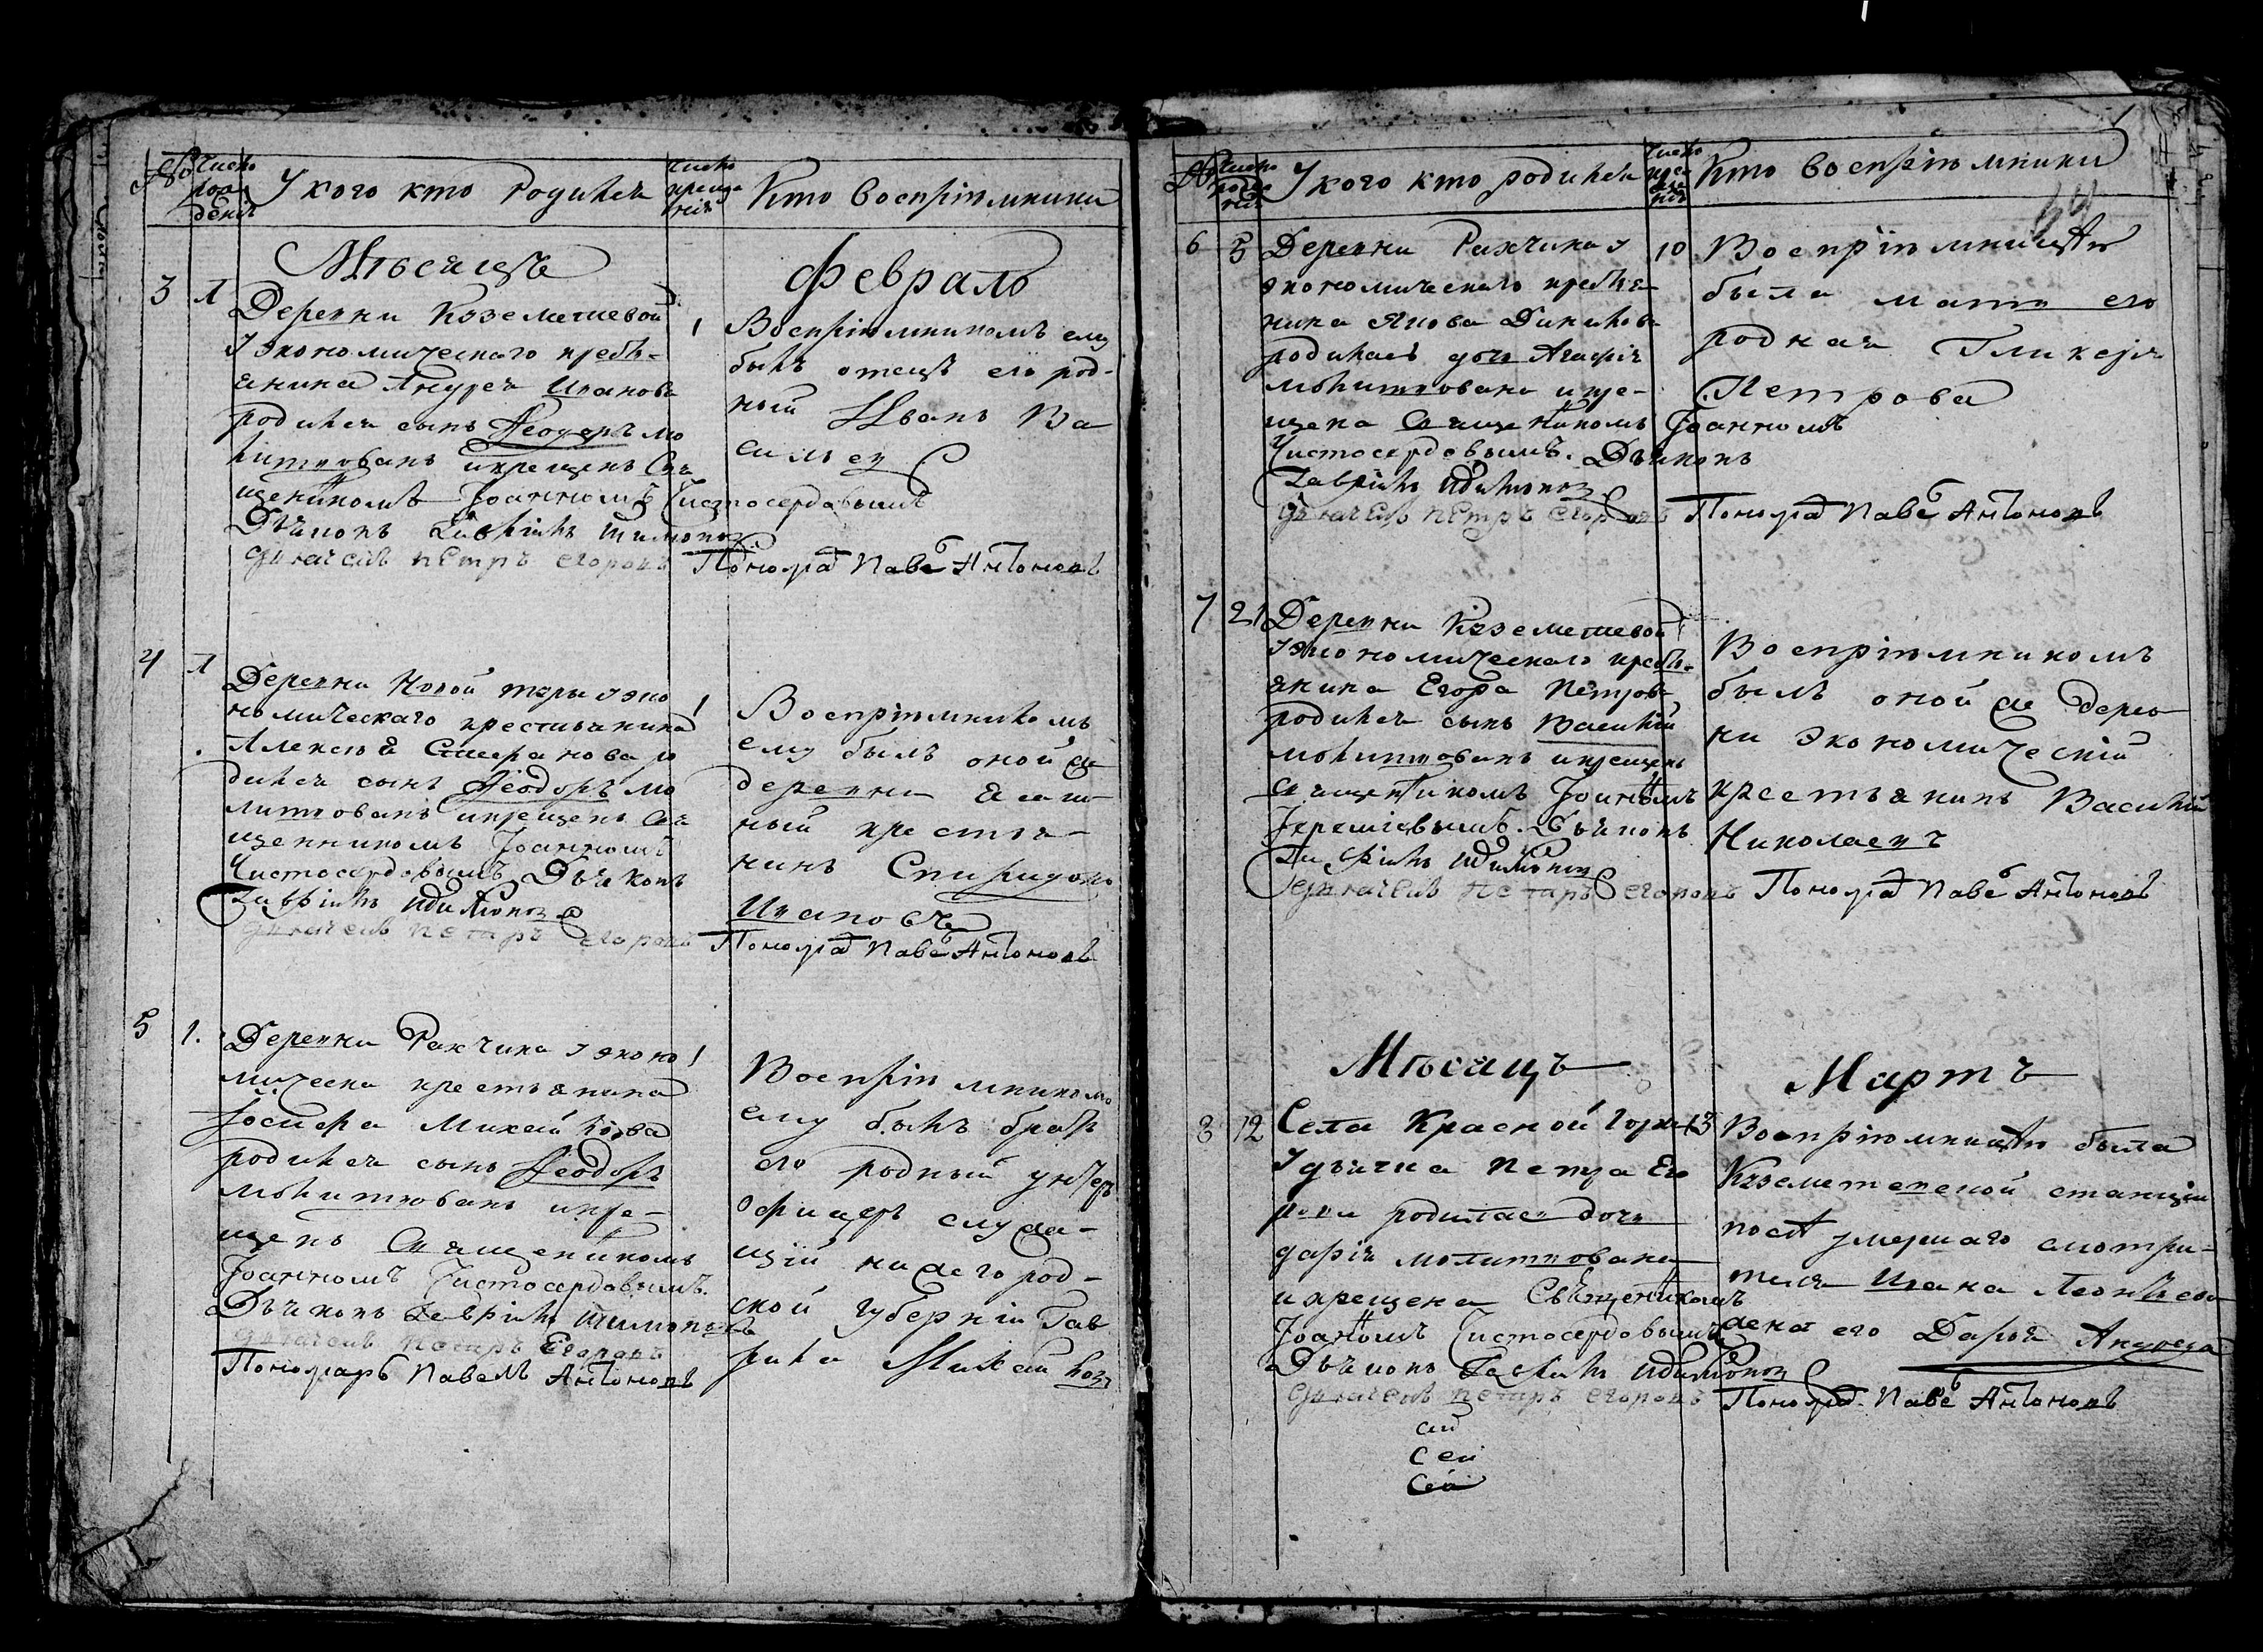 №
Число рождения
У кого кто Родился
Число крещения
Кто воспрiемники
Мѣсяцъ
Февраль
3
1
Деревни Куземетевой
у экономическаго кресть-
янина Андрея Иванова
родился сынъ Ѳеодоръ мо
литвованъ икрещенъ Свя
щенникомъ Iоанномъ Чистосердовымъ
Дьяконъ Гаврiилъ
дьячекъ петръ егоровъ
1
Воспрiемникомъ ему
былъ отецъ его род-
ной Иванъ Ва
сильев
Понома Паве Антоновъ
4
1
Деревни Новой туры у эко
номическаго крестьянина
Алексѣя ро
дился сынъ Ѳеодоръ мо
литвованъ икрещенъ Свя
щенникомъ Iоанномъ
Чистосердовымъ Дьяконъ
Гаврiилъ
дьячекъ петръ егоровъ
1
Воспрiемникомъ
ему былъ оной же
деревни
ный крестья-
нинъ Спиридонъ
Ивановъ
Понома Паве Антоновъ
5
1.
Деревни Ракчина у эконо
мическа крестьянина
Iосифа Михайлова
родился сынъ Ѳеодоръ
молитвованъ икре-
щенъ Священикомъ
Iоанномъ Чистосердовымъ.
Дьяконъ Гаврiилъ
дьячекъ петръ Егоровъ
Пономарь Павелъ Антоновъ
1
Воспрiемникомъ
ему былъ братъ
его родный унтеръ
офицеръ служа-
щiй нижегород-
ской губернiи Гав
рила Михайлов
№
Число рожденiя
У кого кто родился
Число крещенiя
Кто воспрiемники
6
5
Деревни Ракчина у
экономическаго крестья-
нина Якова Данилова
родилась дочь Агафiя
молитвована икре-
щена Священикомъ Iоанномъ
Чистосердовымъ. Дьяконъ
Гаврiилъ
дьячекъ петръ егоровъ
10
Воспрiемницею
была мать его
родная Гликерiя
Петрова
Понома Паве Антоновъ
7
21
Деревни Куземетевой
у экономическаго кресть-
янина Егора Петрова
родился сынъ Василiй
молитвованъ икрещенъ
Священикомъ Iоанномъ
Iеремiевымъ. Дьяконъ
Гаврiилъ
дьячекъ петаръ егоровъ
Воспрiемникомъ
былъ оной же дерев
ни экономическiй
крестьянинъ Василiй
Николаевъ
Понома Паве Антоновъ
Мѣсяцъ
Мартъ
8
12
Села Красной Горки
у дьячка петра Его
рова родилась дочь
дарiя молитвована
икрещена Священикомъ
Iоанномъ Чистосердовымъ
Дьяконъ Гаврiилъ
дьячекъ петаръ егоровъ
сей
сей
сей
13
Воспрiемницею была
Куземетевской станцiи
после умершаго смотри-
теля Ивана Леонтьева
жена его Дарья Андреева
Понома Паве Антоновъ